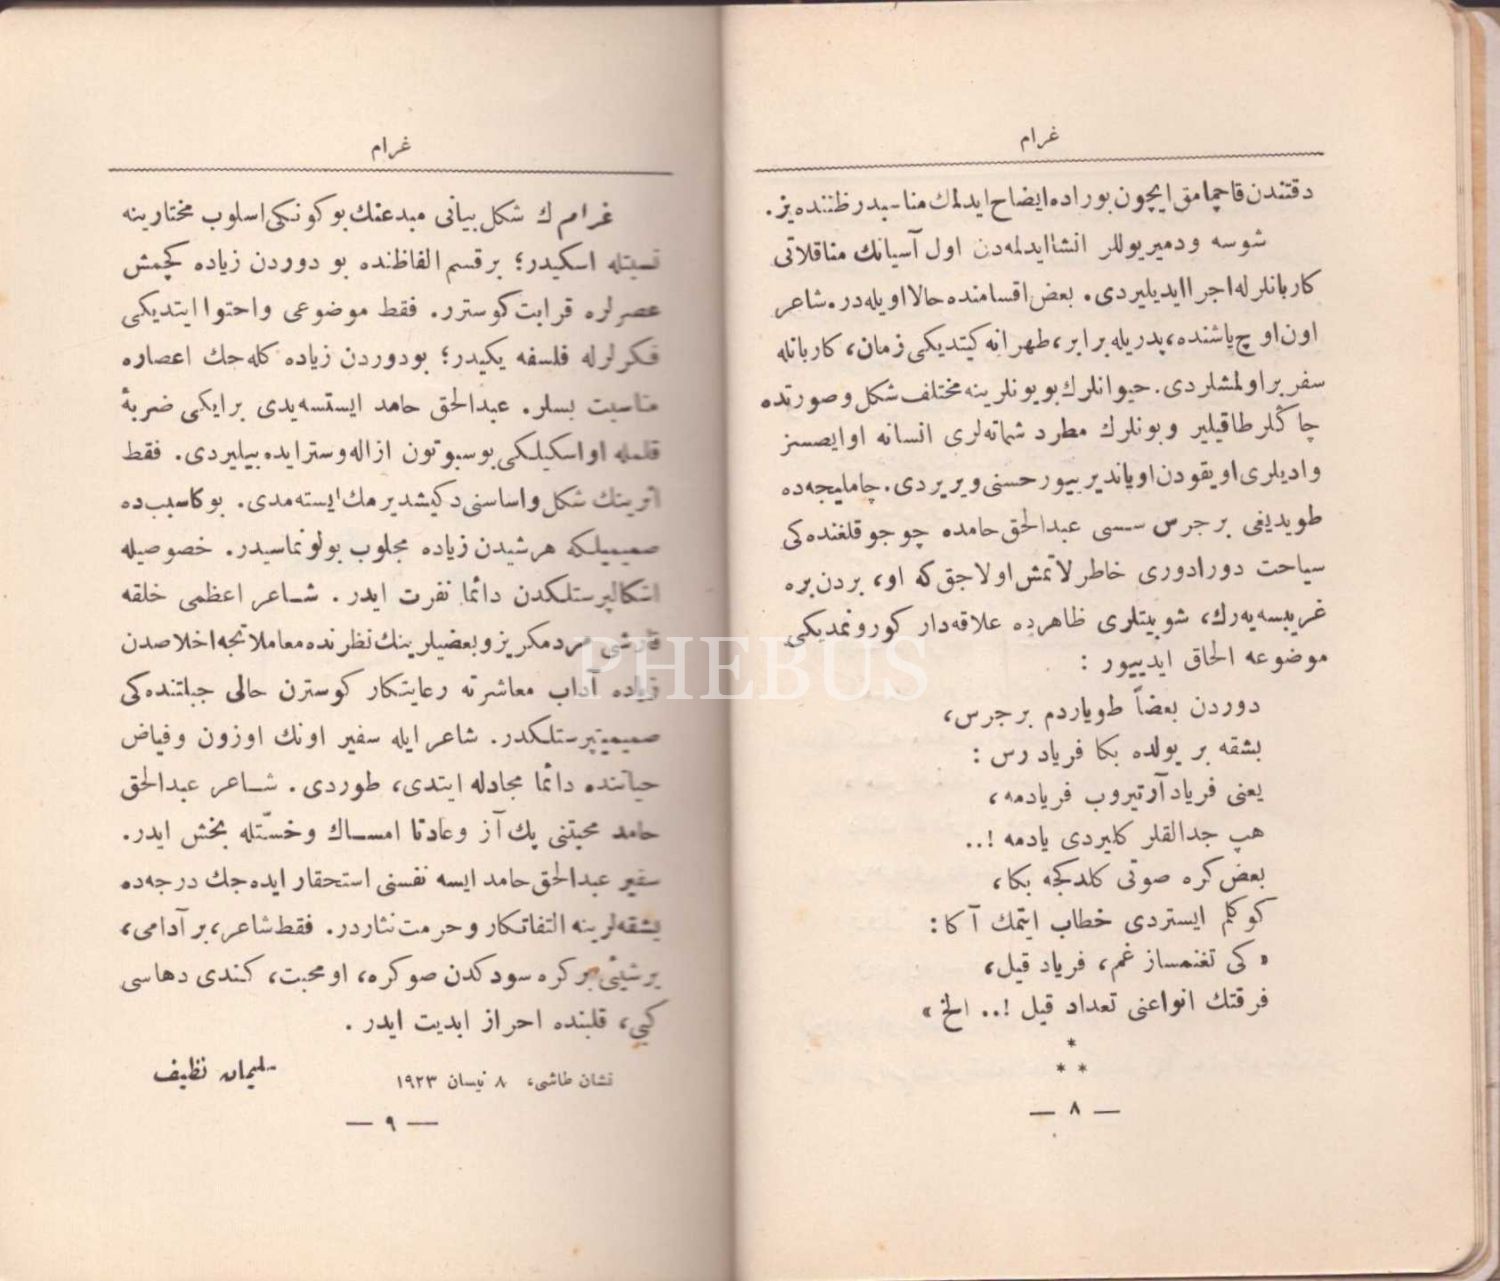 غرام
دقتندن قاچمامق ایچون بوراده ایضاح ایدلمك مناسبدر ظننده یز.
شوسه و دمیریوللر انشا ایدلمه دن اول آسیانك مناقلاتی
كاربانلرله اجرا ایدیلیردی. بعض اقسامنده حالا اویله در. شاعر
اون اوچ یاشنده، پدریله برابر، طهرانه كیتدیكی زمان، كاربانله
سفربر اولمشلردی. حیوانلرك بویونلرینه مختلف شكل و صورتده
چاڭلر طاقیلیر و بونلرك مطرد شماته لری انسانه او ایصسز
وادیلری اویقودن اویاندیرییور حسنی ویریردی. چاملیجه ده
طویدیغی بر جرس سسی عبدالحق حامده چوجوقلغنده كی
سیاحت دورادوری خاطرلاتمش اولاجق كه او، بردن بره
غریبسه یه رك، شو بیتلری ظاهرده علاقه دار كورونمدیكی
موضوعه الحاق ایدییور :
دوردن بعضاً طویاردم بر جرس،
بشقه بر یولده بكا فریاد رس :
یعنی فریاد آرتیروب فریادمه،
هپ جدالقلر كلیردی یادمه !..
بعض كره صوتی كلدكجه بكا،
كوكلم ایستردی خطاب ایتمك آكا :
« كی تغنمساز غم، فریاد قیل،
فرقتك انواعنی تعداد قیل !.. الخ »
*
* *
— ٨ —
غرام
غرامك شكل بیانی مبدعنك بوكونكی اسلوب مختارینه
نسبتله اسكیدر؛ بر قسم الفاظنده بو دوردن زیاده كچمش
عصرلره قرابت كوسترر. فقط موضوعی و احتوا ایتدیكی
فكرلرله فلسفه یكیدر؛ بودوردن زیاده كله جك اعصاره
مناسبت بسلر. عبدالحق حامد ایستسه یدی بر ایكی ضربهٔ
قلمله او اسكیلكی بوسبوتون ازاله و ستر ایده بیلیردی. فقط
اثرینك شكل و اساسنی دكیشدیرمك ایسته مدی. بوكا سبب ده
صمیمیلكه هر شیدن زیاده مجلوب بولونماسیدر. خصوصیله
اشكالپرستلكدن دائما نفرت ایدر. شاعر اعظمی خلقه
قارشی مردمكریز و بعضیلرینك نظرنده معاملاتجه اخلاصدن
زیاده آداب معاشرته رعایتكار كوسترن حالی جبلتنده كی
صمیمیتپرستلكدر. شاعر ایله سفیر اونك اوزون و فیاض
حیاتنده دائما مجادله ایتدی، طوردی. شاعر عبدالحق
حامد محبتنی پك آز و عادتا امساك و خسّتله بخش ایدر.
سفیر عبدالحق حامد ایسه نفسنی استحقار ایده جك درجه ده
بشقه لرینه التفاتكار و حرمت نثاردر. فقط شاعر، بر آدامی،
بر شیئی بر كره سودكدن صوكره، او محبت، كندی دهاسی
كبی، قلبنده احراز ابدیت ایدر.
نشان طاشی، ٨ نیسان ١٩٢٣
سلیمان نظیف
— ٩ —
PHEBUS